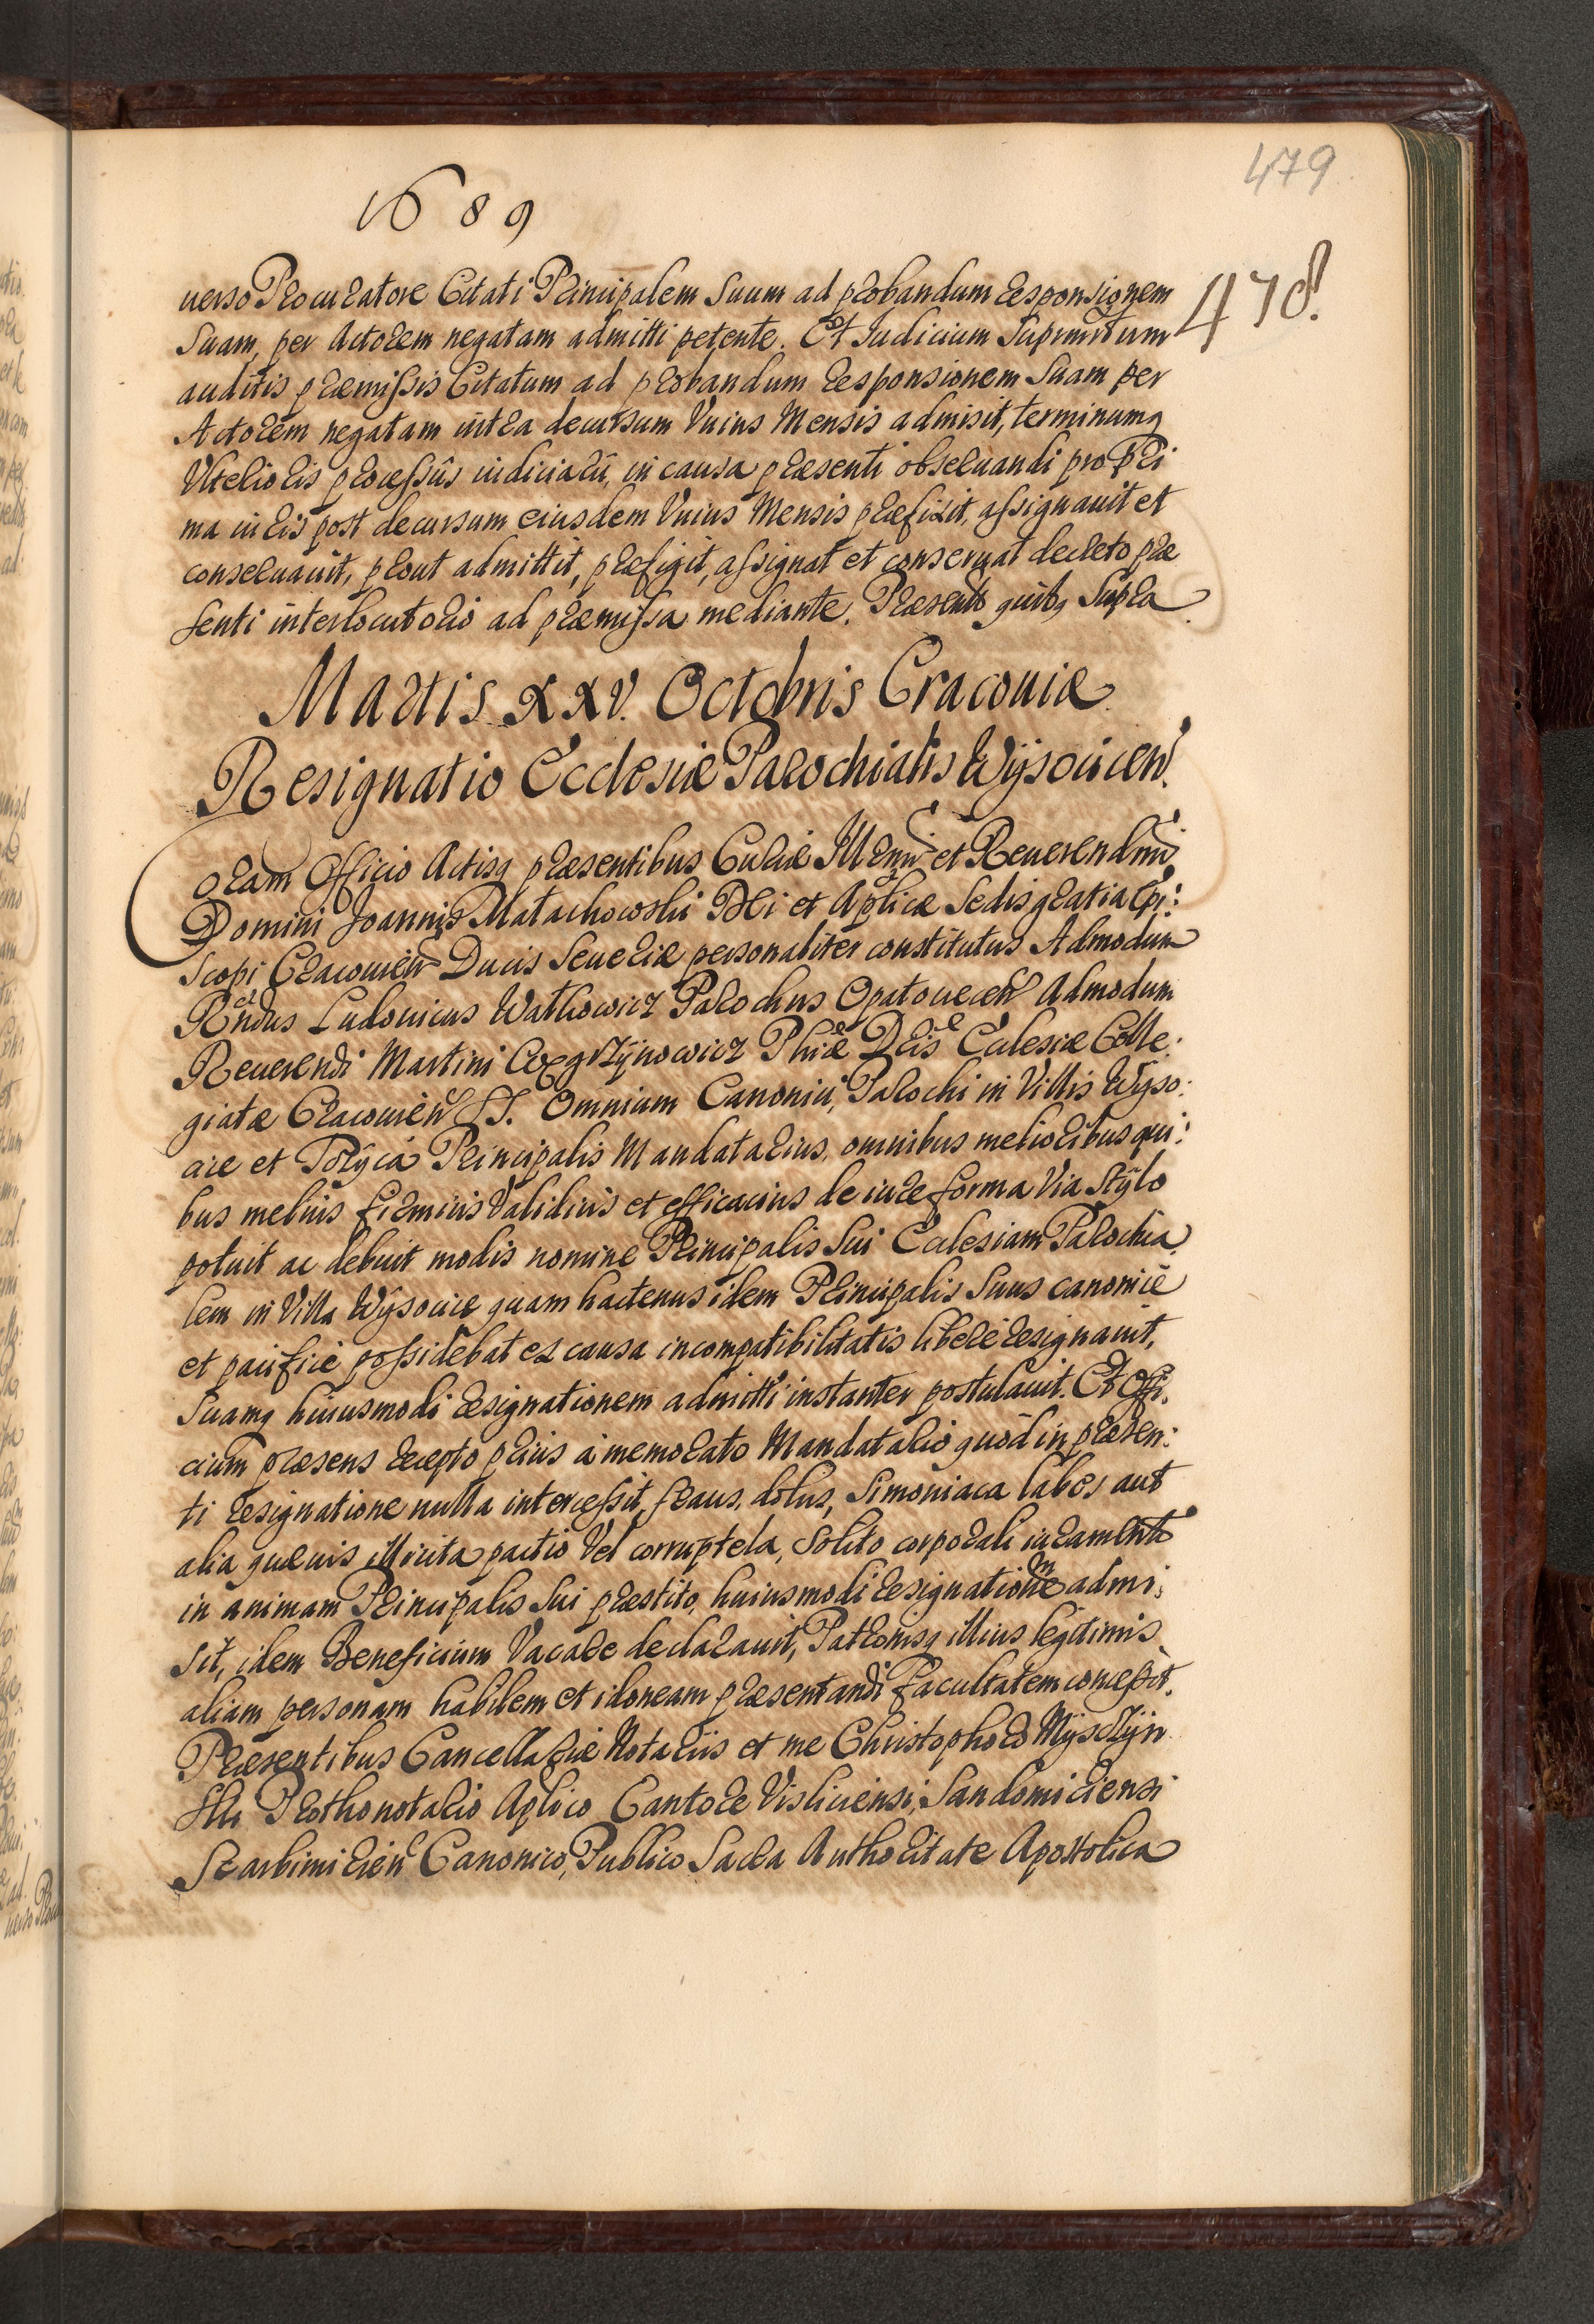 479
1689
478.
uerso Procuratore Citati Principalem Suum ad probandum responsionem
Suam, per Actorem negatam admitti petente. Et Iudicium Suprmũ tum
auditis præmissis Citatum ad probandum responsionem Suam per
Actorem negatam intra decursum Vnius Mensis admisit, terminumq
Vlterioris processûs iudiciarij, in causa præsenti obseruandi pro Pri
ma iuris post decursum eiusdem Vnius Mensis præfixit, assignauit et
conseruauit, prout admittit, præfigit, assignat et conseruat decreto præ
senti interlocutorio ad præmissa mediante. Præsentb quibq Supra
Martis XXV. Octobris Cracouiæ
Resignatio Ecclesiæ Parochialis Wÿsocicen.
Coram Officio Actisq præsentibus Curiæ Illrmi et Reuerendmi
Domini Joannis Małachowski Dei et Aplicæ Sedis gratia Epi:
scopi Cracouien Ducis Seueriæ personaliter constitutus Admodum
Rndus Ludouicus Wathowicz Parochus Opatouecen Admodum
Reuerendi Martini Węgrzÿnowicz Phiæ Dris Eclesiæ Colle:
giatæ Cracouien SS. Omnium Canonici, Parochi in Villis Wÿso:
cice et Polÿcá Principalis Mandatarius, omnibus melioribus qui:
bus melius firmius Validius et efficacius de iure forma Via Stÿlo
potuit ac debuit modis nomine Principalis Sui Eclesiam Parochia
lem in Villa Wÿsocice quam hactenus idem Principalis Suus canonicè
et pacificè possidebat ex causa incompatibilitatis liberè resignauit,
Suamq huiusmodi resignationem admitti instanter postulauit. Et Offi,
cium præsens recepto prius à memorato Mandatario quòd in præsen:
ti resignatione nulla intercessit, fraus, dolus, Simoniaca labes aut
alia quæuis illicita pactio Vel corruptela, Solito corporali iuramento
in animam Principalis Sui præstito, huiusmodi resignationem admi:
sit, idem Beneficium Vacare declarauit, Patronisq illius legitimis
aliam personam habilem et idoneam præsentandi facultatem concessit.
Præsentibus Cancellariæ Notariis et me Christophoro Mÿszÿn
ski Prothonotario Aplico Cantore Visliciensi, Sandomiriensi
Scarbimirien Canonico, Publico Sacra Authoritate Apostolica